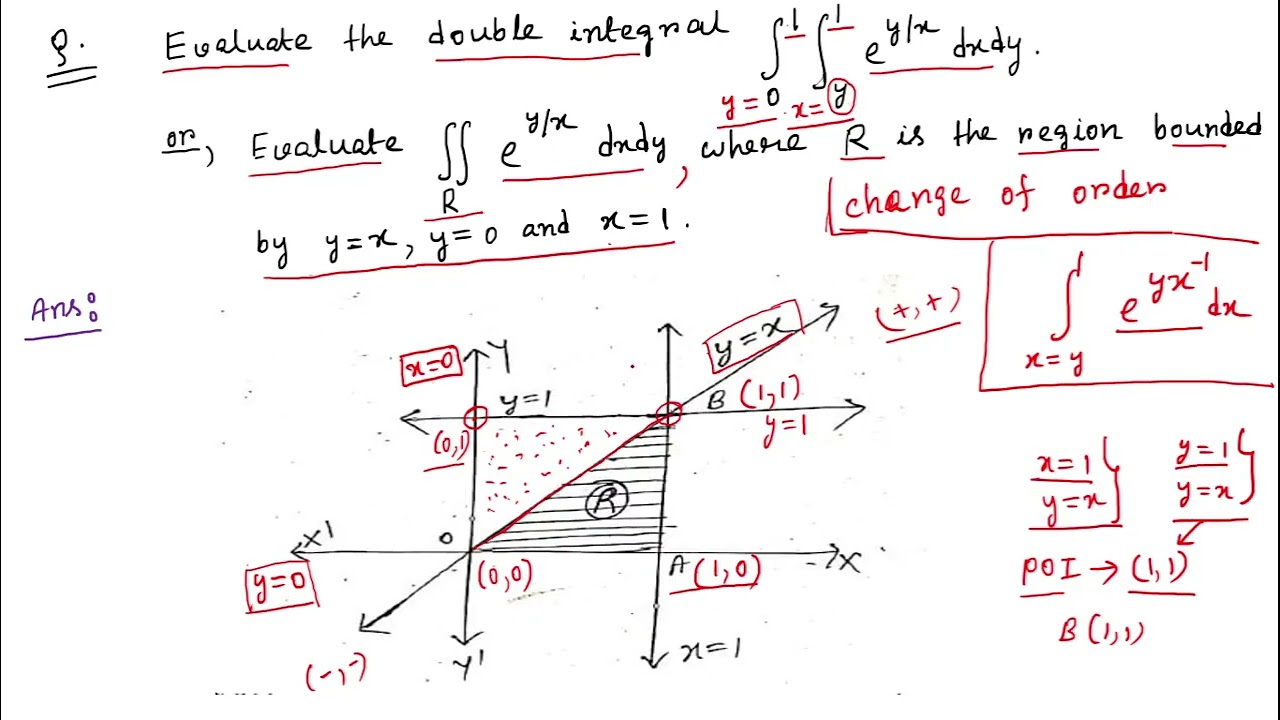 Q. Evaluate the double integral ∫_{y=0}^{1} ∫_{x=y}^{1} e^{y/x} dxdy.
or, Evaluate ∬_R e^{y/x} dxdy, where R is the region bounded
by y=x, y=0 and x=1.
change of order
∫_{x=y}^{1} e^{yx^{-1}} dx
Ans:
(+,+)
y=x
x=0
Y
y=1
B (1,1)
y=1
(0,1)
x=1
y=x
y=1
y=x
R
X'
O
y=0
(0,0)
A (1,0)
X
POI → (1,1)
B(1,1)
(-,-)
Y'
x=1